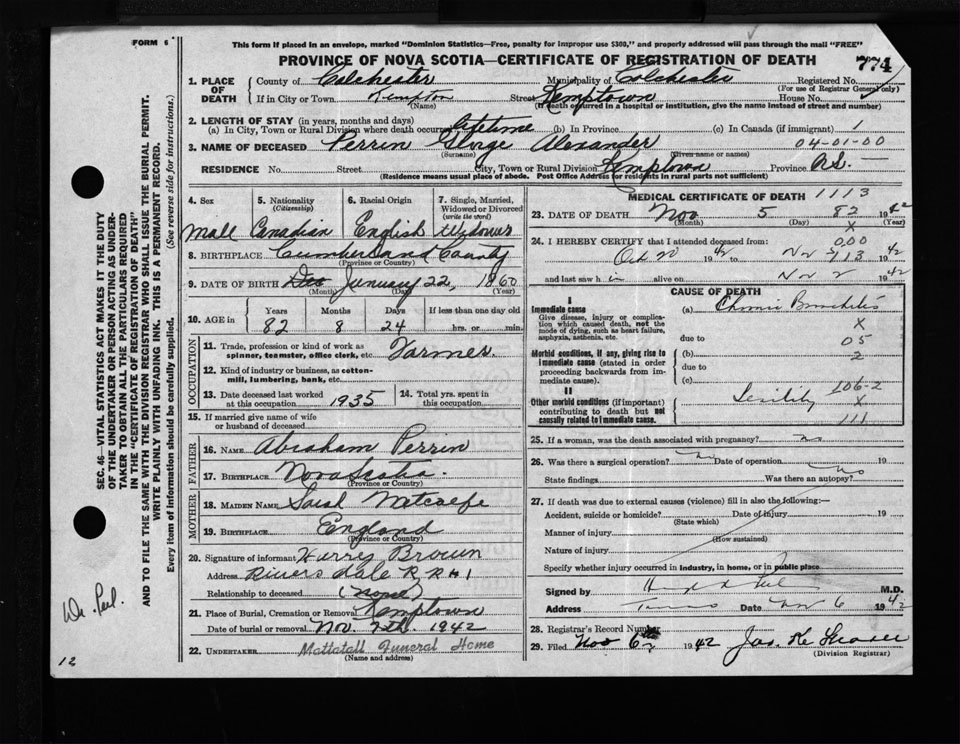 FORM 6
This form if placed in an envelope, marked "Dominion Statistics—Free, penalty for improper use $300," and properly addressed will pass through the mail "FREE"
PROVINCE OF NOVA SCOTIA—CERTIFICATE OF REGISTRATION OF DEATH
774
1. PLACE OF DEATH
County of Colchester Municipality of Colchester Registered No.
(For use of Registrar General only)
If in City or Town Kempton Street Kemptown House No.
(Name) (If death occurred in a hospital or institution, give the name instead of street and number)
2. LENGTH OF STAY (in years, months and days)
(a) In City, Town or Rural Division where death occurred lifetime (b) In Province (c) In Canada (if immigrant) 1
3. NAME OF DECEASED Perrin George Alexander 04-01-00
(Surname) (Given name or names)
RESIDENCE No. Street City, Town or Rural Division Kemptown Province N.S. —
(Residence means usual place of abode. Post Office Address for residents in rural parts not sufficient)
4. Sex
Male
5. Nationality
(Citizenship)
Canadian
6. Racial Origin
English
7. Single, Married, Widowed or Divorced
(write the word)
Widower
8. BIRTHPLACE Cumberland County
(Province or Country)
9. DATE OF BIRTH Dec January 22, 1860
(Month) (Day) (Year)
10. AGE in
Years Months Days If less than one day old
82 8 24 hrs. or min.
OCCUPATION
11. Trade, profession or kind of work as spinner, teamster, office clerk, etc. Farmer.
12. Kind of industry or business, as cotton-mill, lumbering, bank, etc.
13. Date deceased last worked at this occupation 1935
14. Total yrs. spent in this occupation
15. If married give name of wife or husband of deceased
FATHER
16. NAME Abraham Perrin
17. BIRTHPLACE Nova Scotia.
(Province or Country)
MOTHER
18. MAIDEN NAME Sarah Metcalfe
19. BIRTHPLACE England
(Province or Country)
20. Signature of informant Harris Brown
Address Rivers dale R.R # 1
Relationship to deceased (None)
21. Place of Burial, Cremation or Removal Kemptown
Date of burial or removal Nov. 7th. 1942
22. UNDERTAKER Mattatall Funeral Home
(Name and address)
MEDICAL CERTIFICATE OF DEATH 1113
23. DATE OF DEATH Nov 5 82 1942
(Month) (Day) (Year)
X
24. I HEREBY CERTIFY that I attended deceased from: 000
Oct 20 1942 to Nov 2 113 1942
and last saw h in alive on Nov 2 1942
CAUSE OF DEATH
I
Immediate cause
Give disease, injury or complication which caused death, not the mode of dying, such as heart failure, asphyxia, asthenia, etc.
(a) Chronic Bronchitis
X
due to 05
Morbid conditions, if any, giving rise to immediate cause (stated in order proceeding backwards from immediate cause).
(b) 2
due to
(c)
106-2
II
Other morbid conditions (if important) contributing to death but not causally related to immediate cause.
Senility X
111
25. If a woman, was the death associated with pregnancy? no
26. Was there a surgical operation? no Date of operation 19
State findings Was there an autopsy? no
27. If death was due to external causes (violence) fill in also the following:—
Accident, suicide or homicide? Date of injury 19
(State which)
Manner of injury
(How sustained)
Nature of injury
Specify whether injury occurred in industry, in home, or in public place
Signed by M.D.
Address Truro Date Nov 6 1942
28. Registrar's Record Number
29. Filed Nov 6th 1942 Jas. K. Fraser
(Division Registrar)
SEC. 46—VITAL STATISTICS ACT MAKES IT THE DUTY
OF THE UNDERTAKER OR PERSON ACTING AS UNDER-
TAKER TO OBTAIN ALL THE PARTICULARS REQUIRED
IN THE "CERTIFICATE OF REGISTRATION OF DEATH"
AND TO FILE THE SAME WITH THE DIVISION REGISTRAR WHO SHALL ISSUE THE BURIAL PERMIT.
WRITE PLAINLY WITH UNFADING INK. THIS IS A PERMANENT RECORD.
Every item of information should be carefully supplied. (See reverse side for instructions.)
Dr. Peel.
12